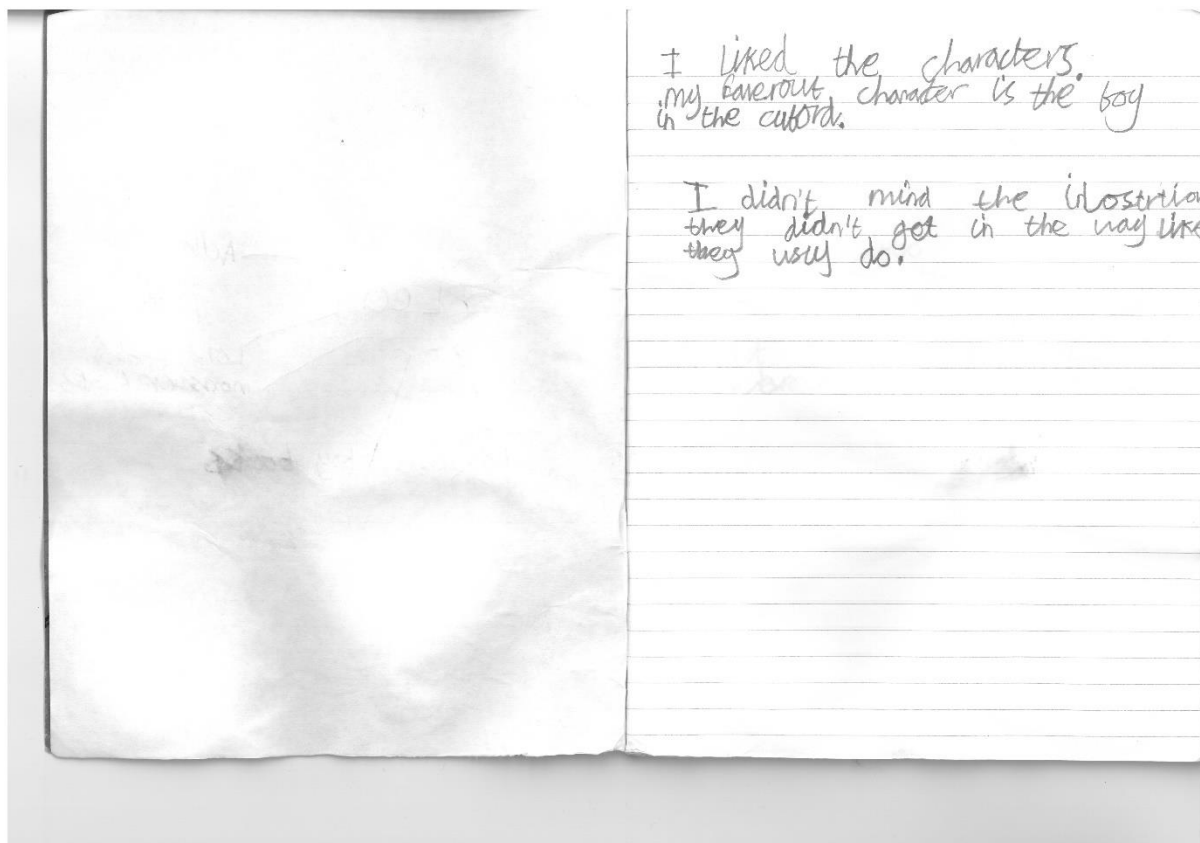 I liked the characters.
my faverout character is the boy
in the cubord.
I didn't mind the ilostrtion
they didn't get in the way like
they usly do.